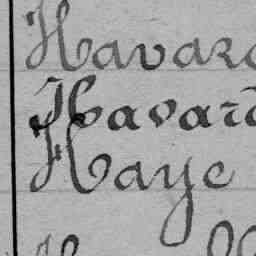 Havard
Havard
Haye